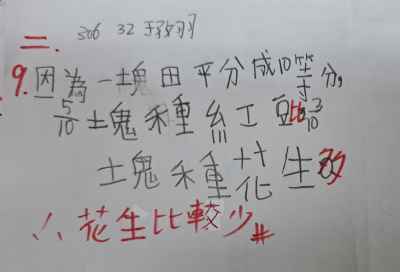 306 32
二.
9.因為一塊田平分成10等分,
5/10土塊種紅豆比3/10
土塊種花生多
∴花生比較少#